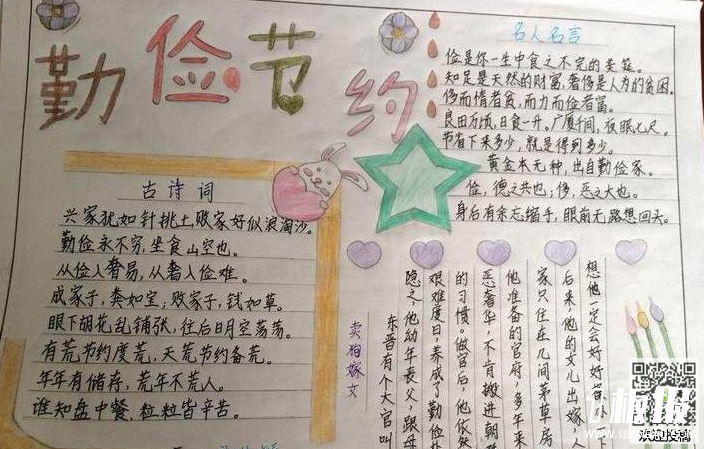 勤俭节约
古诗词
兴家犹如针挑土,败家好似浪淘沙。
勤俭永不穷,坐食山空也。
从俭入奢易,从奢入俭难。
成家子,粪如宝;败家子,钱如草。
眼下胡花乱铺张,往后日月空荡荡。
有荒节约度荒,无荒节约备荒。
年年有储存,荒年不荒人。
谁知盘中餐,粒粒皆辛苦。
名人名言
俭是你一生中食之不完的美筵。
知足是天然的财富,奢侈是人为的贫困。
侈而惰者贫,而力而俭者富。
良田万顷,日食一升。广厦千间,夜眠七尺。
节省下来多少,就是得到多少。
黄金本无种,出自勤俭家。
俭,德之共也;侈,恶之大也。
身后有余忘缩手,眼前无路想回头。
卖狗嫁女
东晋有个大官叫
隐之,他幼年丧父,跟母
艰难度日,养成了勤俭
的习惯。做官后,他依然
恶奢华,不肯搬进朝
他准备的官府,多年来
家只住在几间茅草房
后来,他的女儿出嫁,人
想他一定会好好